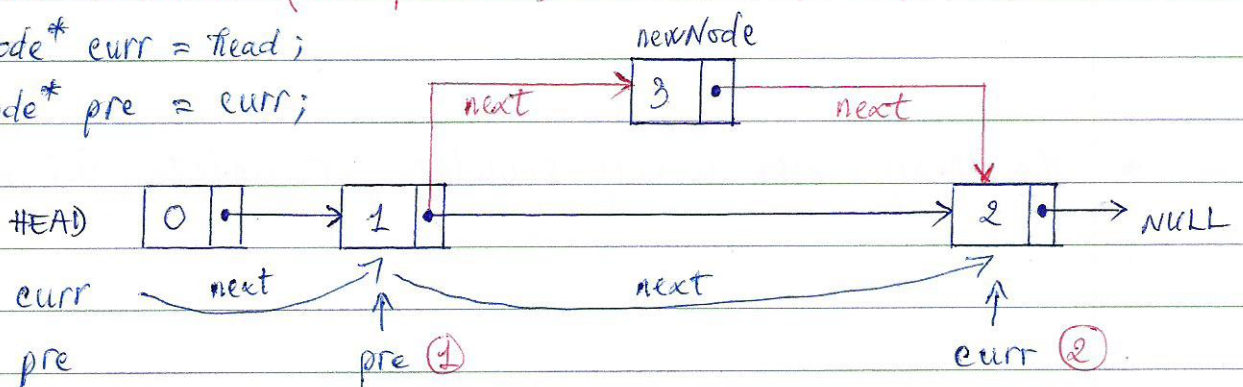 ode* curr = head;
de* pre = curr;
newNode
3
next
next
HEAD
0
1
2
NULL
curr
next
next
pre
pre ①
curr ②.